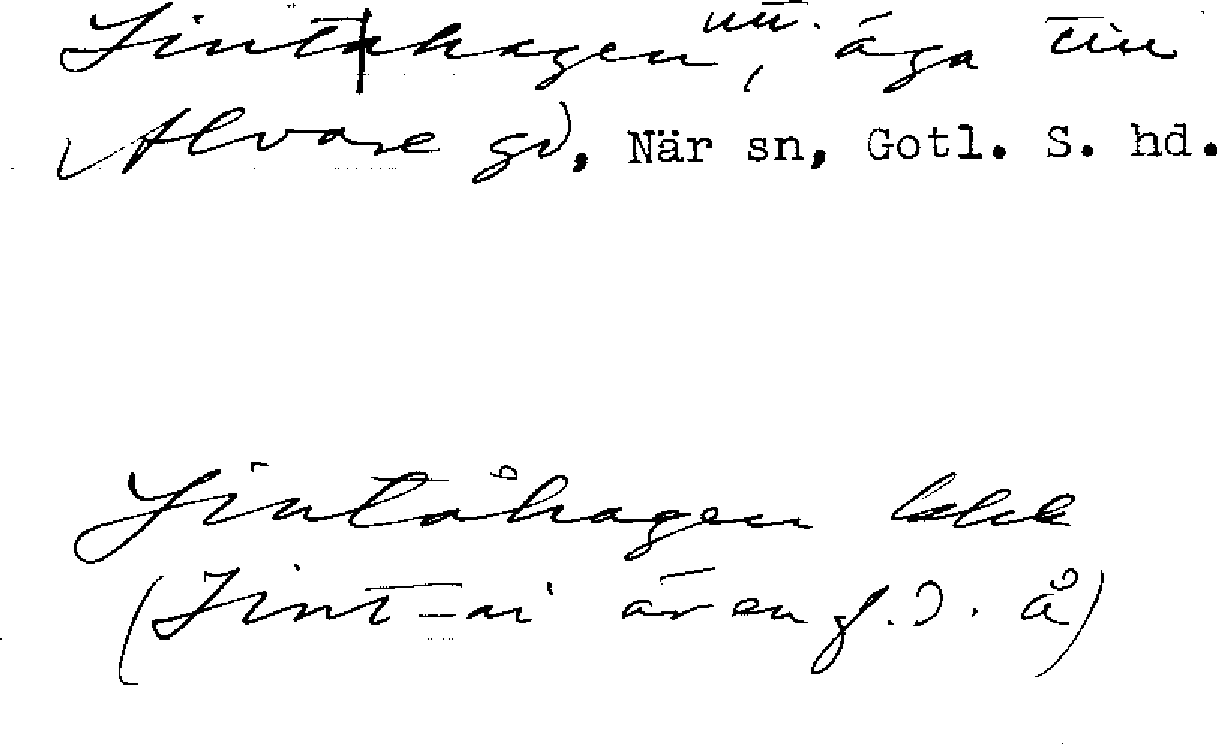 Lintahagen, nu. äga till
Alvare gd, När sn, Gotl. S. hd.
Lintåhagen ekk
(Lint-ai är en f.d. å)